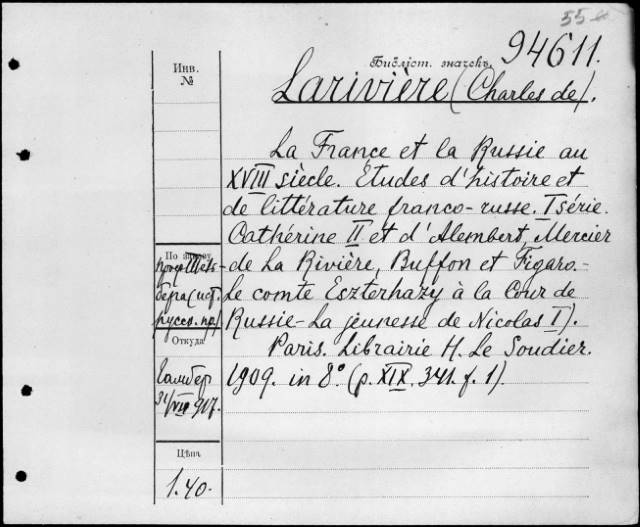 55
94611.
Инв.
№
Библіот. значекъ
Larivière (Charles de).
La France et la Russie au
XVIII siècle. Études d'histoire et
de littérature franco-russe. I série.
Cathérine II et d'Alembert, Mercier
de La Rivière, Buffon et Figaro.-
Le comte Eszterhazy à la Cour de
Russie-La jeunesse de Nicolas I).
Paris. Librairie H. Le Soudier.
1909. in 8° (p. XIX. 341. f. 1).
По
проф.
(ист.
русск. пр.)
Откуда
31/VII 917.
Цѣна
1.40.